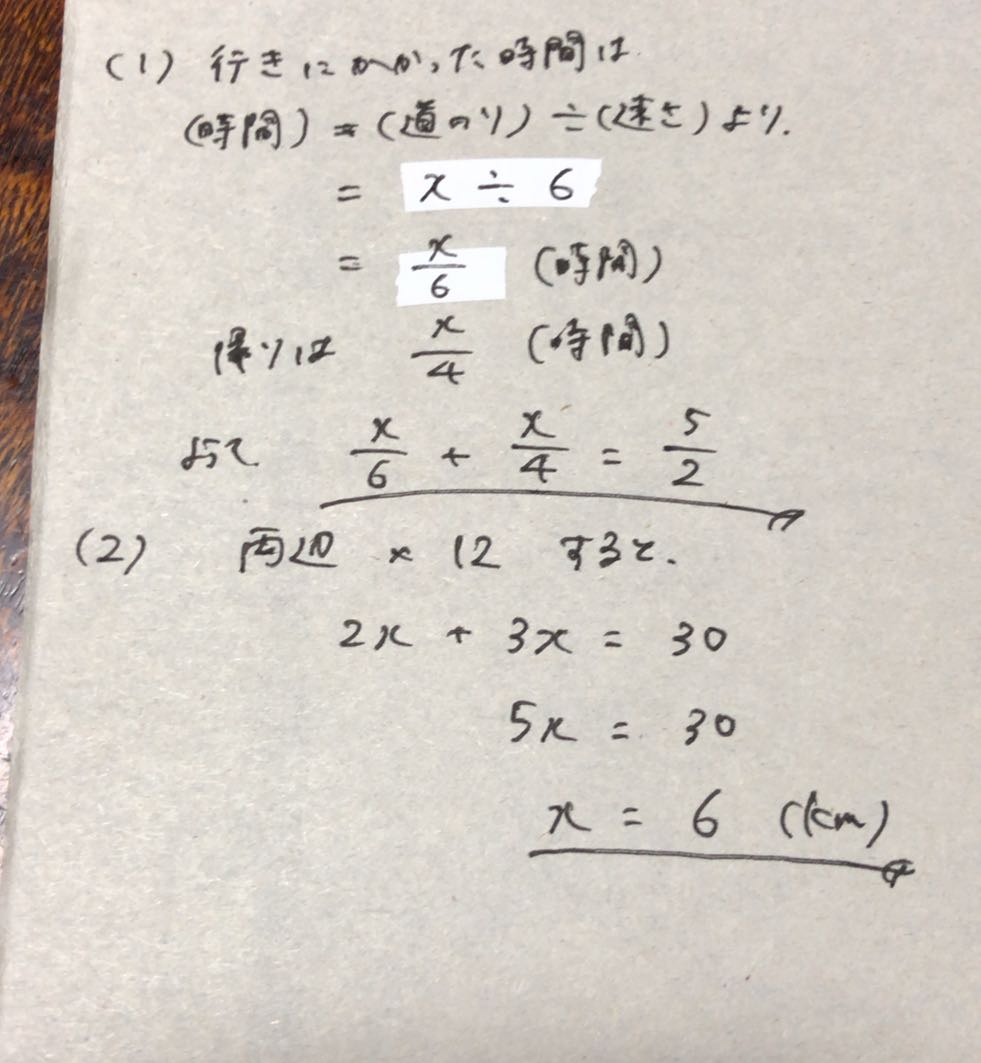 (1) 行きにかかった時間は
(時間) = (道のり) ÷ (速さ) より.
= x ÷ 6
= x/6 (時間)
帰りは x/4 (時間)
よって x/6 + x/4 = 5/2
(2) 両辺 × 12 すると.
2x + 3x = 30
5x = 30
x = 6 (km)